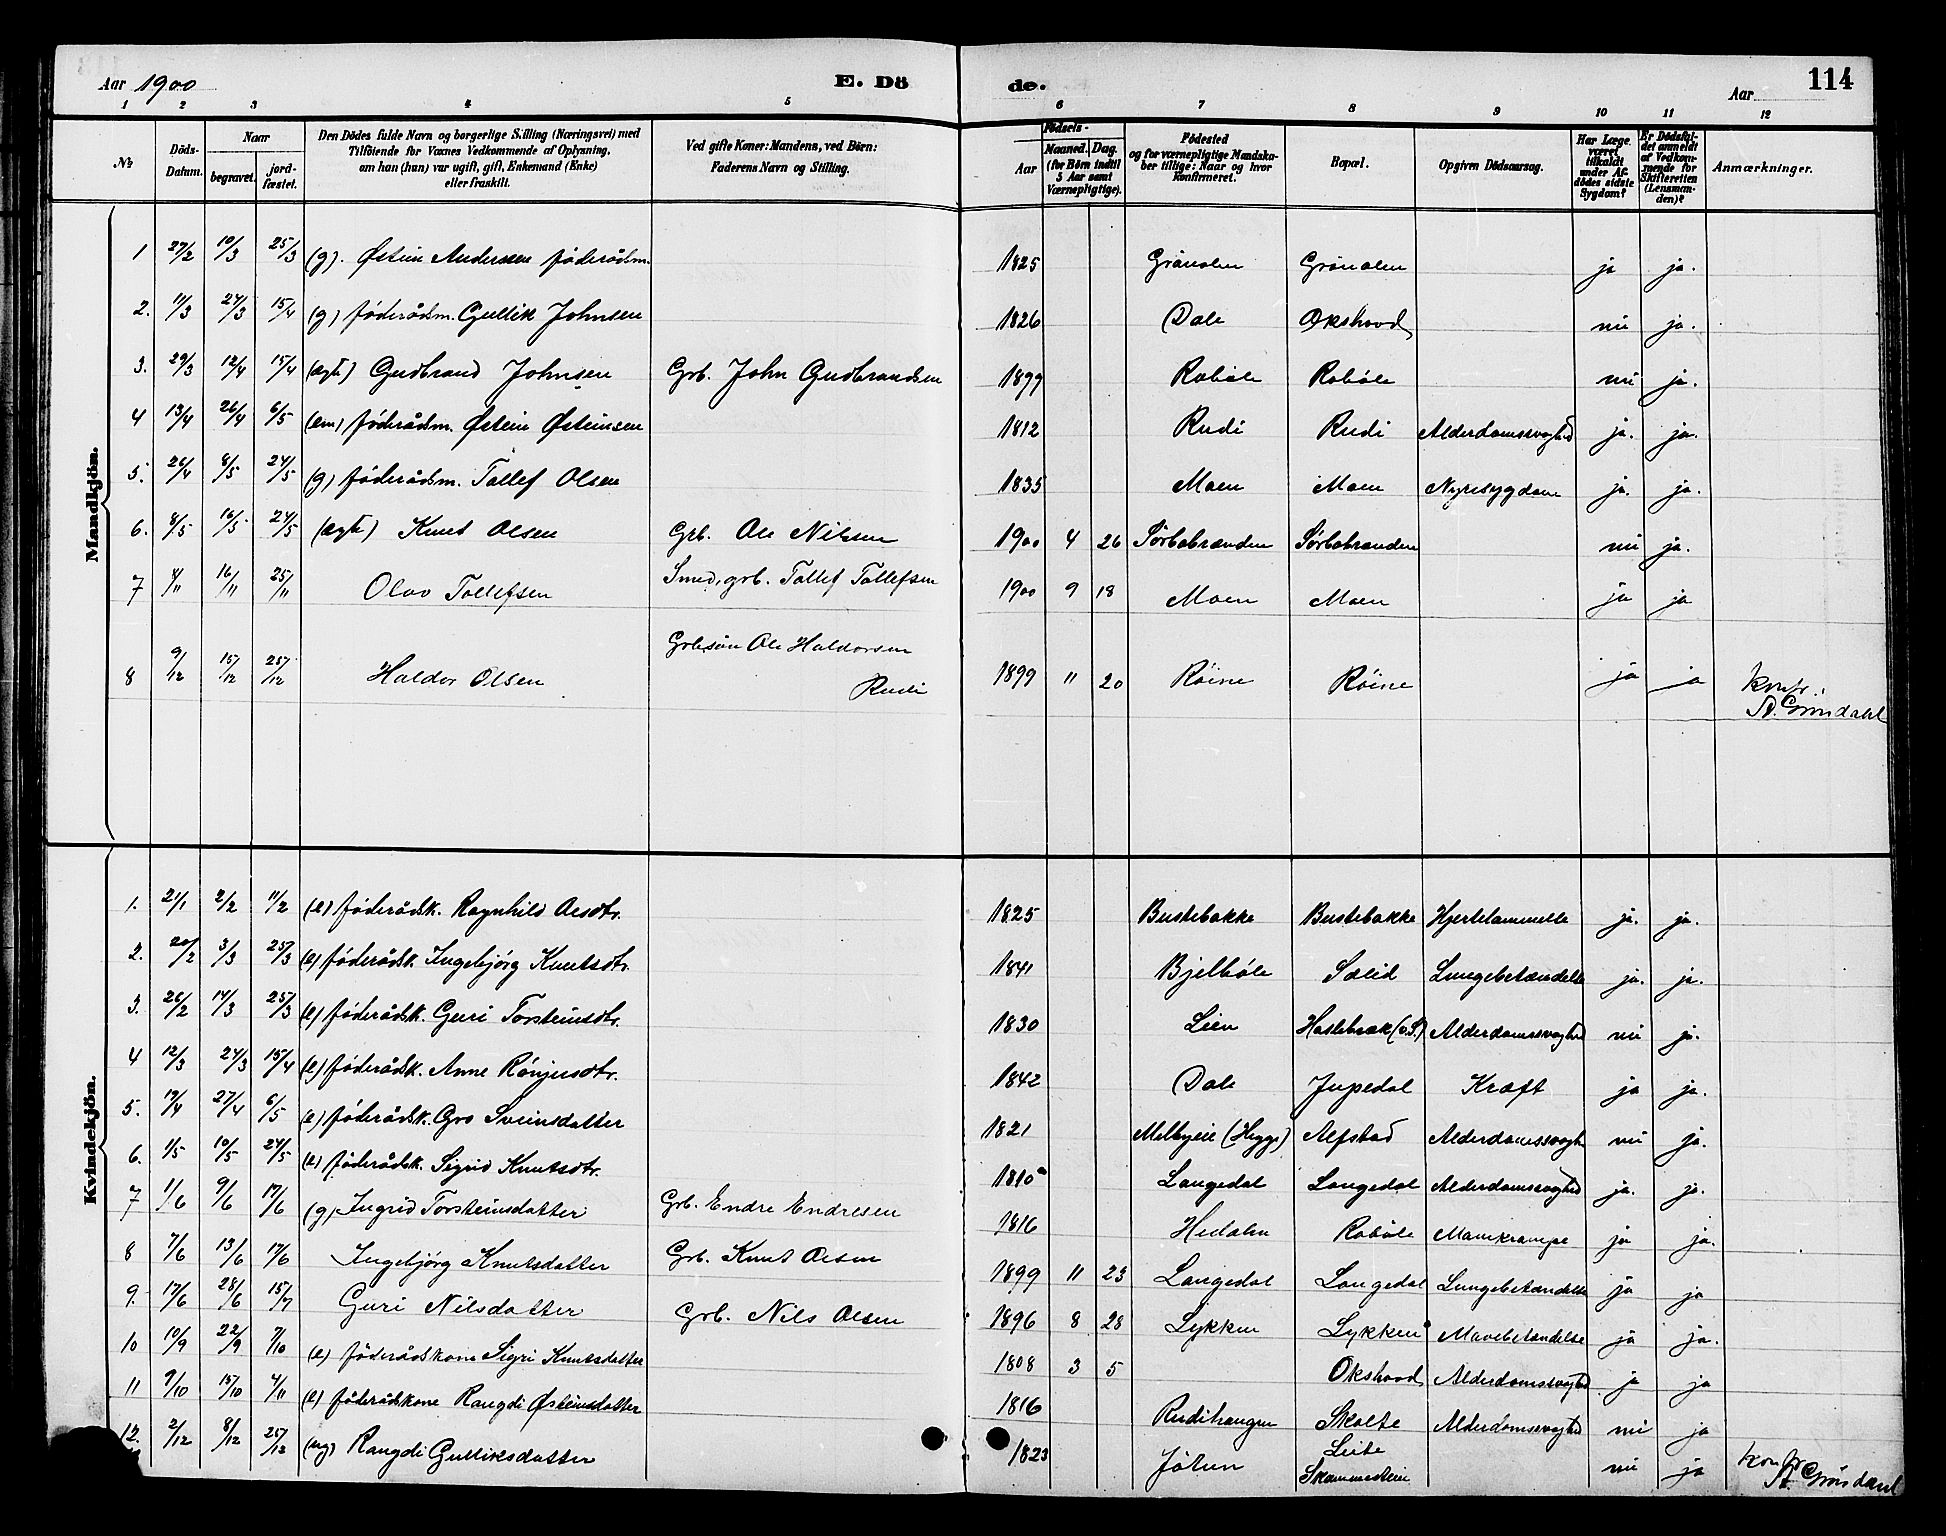 Aar 1900
E. Dö
de.
Aar
114
1 2 3 4 5 6 7 8 9 10 11 12
№
Döds-Datum.
Naar
begravet.
jord-fæstet.
Den Dödes fulde Navn og borgerlige Stilling (Næringsvei) med
Tilföiende for Voxnes Vedkommende af Oplysning,
om han (hun) var ugift, gift, Enkemand (Enke)
eller fraskilt.
Ved gifte Koner: Mandens, ved Börn:
Faderens Navn og Stilling.
Födsels-
Aar
Maaned. Dag.
(for Börn indtil
5 Aar samt
Værnepligtige).
Födested
og for værnepligtige Mandska-
ber tillige: Naar og hvor
konfirmeret.
Bopæl.
Opgiven Dödsaarsag.
Har Læge
været
tilkaldt
under Af-
dödes sidste
Sygdom?
Er Dödsfal-
det anmeldt
af Vedkom-
mende for
Skifteretten
(Lensman-
den)?
Anmærkninger.
Mandkjön.
1 27/2 10/3 25/3 (g). Østein Andersen föderådsm. 1825 Grönolen Grönolen ja ja.
2. 11/3 24/3 15/4 (g) föderådsm. Gullik Johnsen 1826 Dale Okshovd nei ja.
3. 29/3 12/4 15/4 (ægte) Gudbrand Johnsen Grb. John Gudbrandsen 1899 Robøle Robøle nei ja.
4 13/4 26/4 6/5 (em) föderådsm. Østein Østeinsen 1812 Rudi Rudi Alderdomssvaghed ja. ja.
5. 26/4 8/5 24/5 (g) föderådsm. Tollef Olsen 1835 Moen Moen Nyresygdom ja. ja.
6. 8/5 16/5 24/5 (ægte) Knut Olsen Grb. Ole Nilsen 1900 4 26 Sørbøbraaden Sørbøbraaden nei ja.
7 4/11 16/11 25/11 Olav Tollefsen Smed, grb. Tollef Tollefsen 1900 9 18 Moen Moen ja ja
8 9/12 15/12 25/12 Haldor Olsen Grbesøn Ole Haldorsen
Rudi 1899 11 20 Röine Röine ja ja konfr.
A. Gröndahl
Kvindekjön.
1. 21/1 2/2 11/2 (e) föderådsk. Ragnhild Olsdtr. 1825 Bustebakke Bustebakke Hjertelammelse ja. ja.
2. 20/2 3/3 25/3 (e) föderådsk. Ingebjörg Knutsdtr. 1841 Bjelbøle Sælid Lungebetændelse ja. ja.
3. 26/2 14/3 25/3 (e) föderådsk. Guri Torsteinsdtr. 1830 Lien Haslebræk (ö.S.) Alderdomssvaghed nei ja.
4 12/3 24/3 15/4 (e) föderådsk. Anne Rönjusdtr. 1842 Dale Jupedal Kræft ja ja.
5. 19/4 27/4 6/5 (e) föderådsk. Gro Sveinsdatter 1821 Melbyeie (Hegge) Alfstad Alderdomssvagh nei ja.
6. 1/5 10/5 24/5 (e) föderådsk. Sigrid Knutsdtr. 1810 Langedal Langedal Alderdomssvaghed ja. ja.
7 1/6 9/6 17/6 (g) Ingrid Torsteinsdatter Grb. Endre Endresen 1816 Hedalen Robøle Mavekrampe ja ja.
8 7/6 13/6 17/6 Ingebjörg Knutsdatter Grb. Knut Olsen 1899 11 23 Langedal Langedal Lungebetændelse ja ja
9. 17/6 28/6 15/7 Guri Nilsdatter Grb. Nils Olsen 1896 8 28 Lykken Lykken Mavebetændelse ja ja.
10 10/9 22/9 7/10 (e) föderådskone Sigri Knutsdatter 1808 3 5 Okshovd Alderdomssvaghed ja ja
11 9/10 15/10 4/11 (e) föderådskone Rangdi Østeinsdatter 1816 Rudihaugen Skolte Alderdomssvaghed nei ja
12. 2/12 8/12 25/12 (ug) Rangdi Gulliksdatter 1823 Jötun Leite
Skammestein nei ja konfr
A. Gröndahl